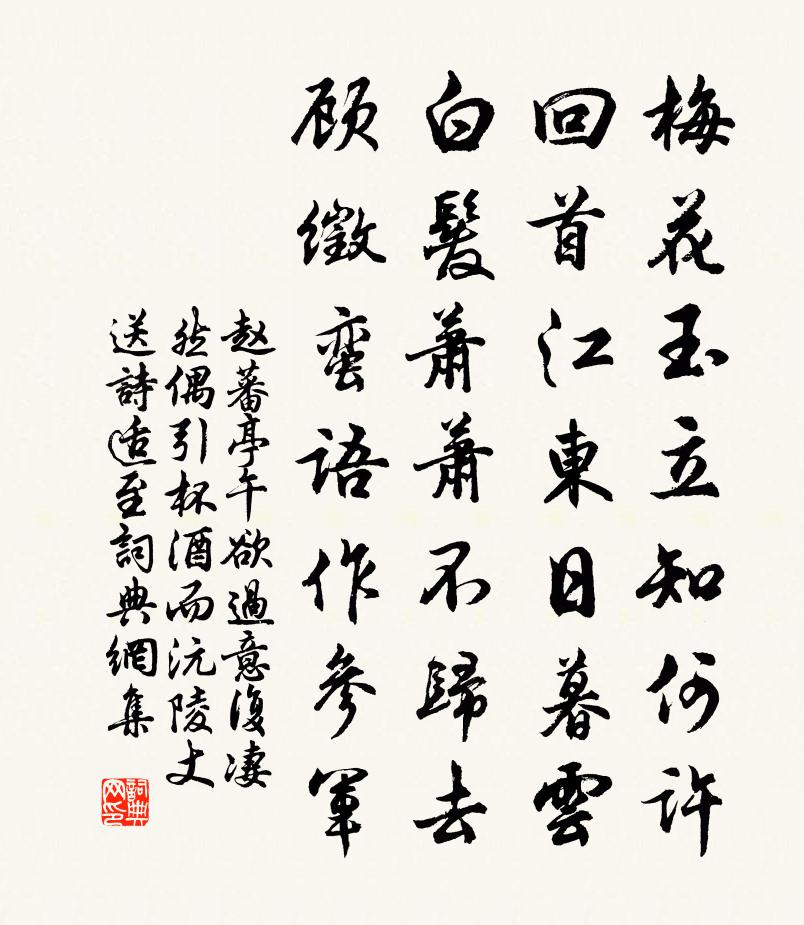 梅花玉立知何許
回首江東日暮雲
白髮蕭蕭不歸去
顾徵蛮語作參軍
赵蕃亭午欲過意復凄
然偶引杯酒而沅陵丈
送詩适至詞典網集
詞典网印